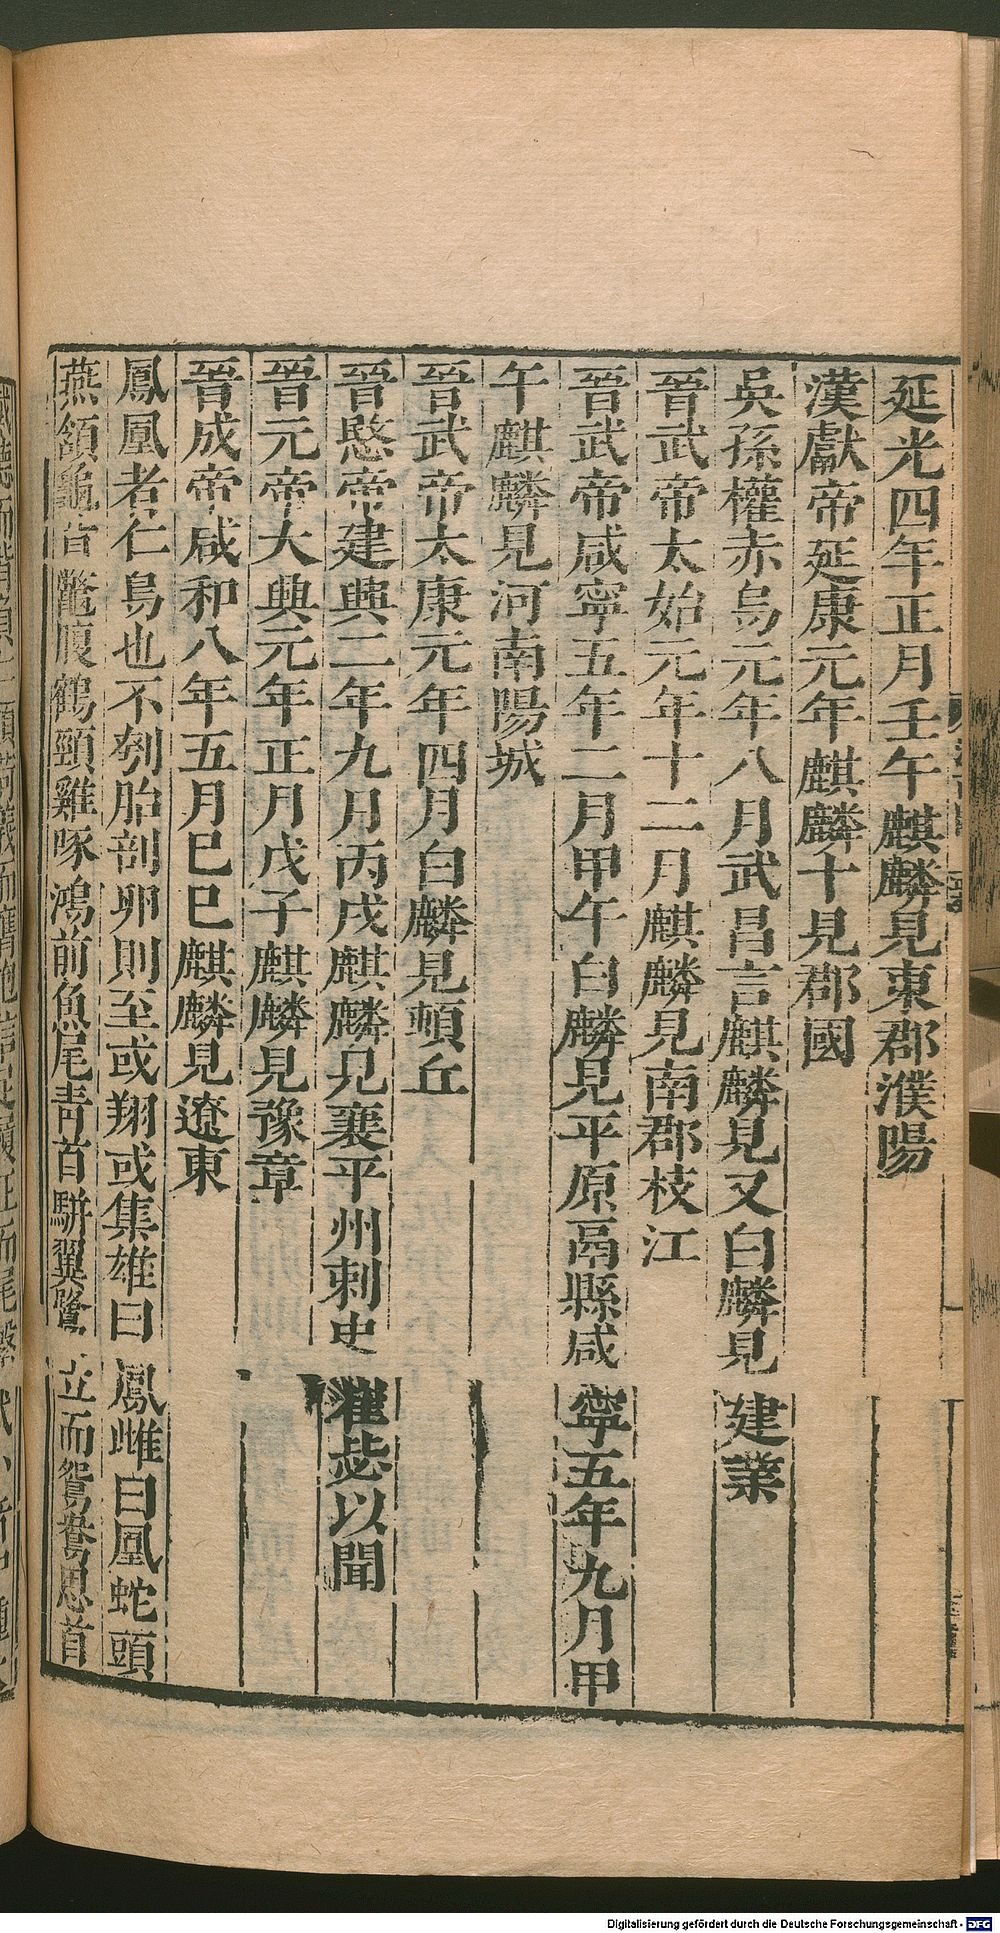 延光四年正月壬午麒麟見東郡濮陽
漢獻帝延康元年麒麟十見郡國
吳孫權赤烏元年八月武昌言麒麟見又白麟見建業
晉武帝太始元年十二月麒麟見南郡枝江
晉武帝咸寧五年二月甲午白麟見平原鬲縣咸寧五年九月甲
午麒麟見河南陽城
晉武帝太康元年四月白麟見頓丘
晉愍帝建興二年九月丙戌麒麟見襄平州刺史崔毖以聞
晉元帝大興元年正月戊子麒麟見豫章
晉成帝咸和八年五月巳巳麒麟見遼東
鳳凰者仁鳥也不刳胎剖卵則至或翔或集雄曰鳳雌曰凰蛇頭
燕頷龜背鼈腹鶴頸雞啄鴻前魚尾青首駢翼鷺立而鴛鴦思首
Digitalisierung gefördert durch die Deutsche Forschungsgemeinschaft - DFG